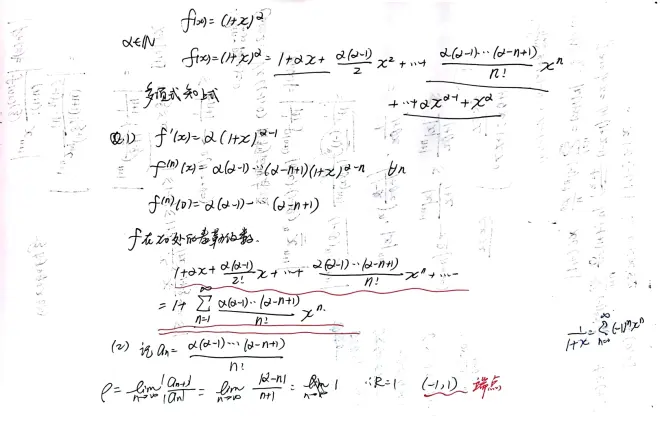 f(x) = (1+x)^α
α∈ℕ
f(x) = (1+x)^α = 1+αx+ α(α-1)/2 x² + ··· + α(α-1)···(α-n+1)/n! x^n
+ ··· + αx^(α-1) + x^α
多项式
(1) f'(x) = α(1+x)^(α-1)
f^(n)(x) = α(α-1)···(α-n+1)(1+x)^(α-n) ∀n
f^(n)(0) = α(α-1)··· (α-n+1)
f在x₀处的泰勒级数.
1+αx+ α(α-1)/2! x + ··· + α(α-1)···(α-n+1)/n! x^n + ···
= 1+ ∑_{n=1}^{∞} α(α-1)···(α-n+1)/n! x^n.
1/(1+x) = ∑_{n=0}^{∞} (-1)^n x^n
(2) 记 a_n = α(α-1)···(α-n+1)/n!
ρ = lim_{n→∞} |a_{n+1}|/|a_n| = lim_{n→∞} |α-n|/(n+1) = lim_{n→∞} 1 ∴R=1 (-1,1) 端点